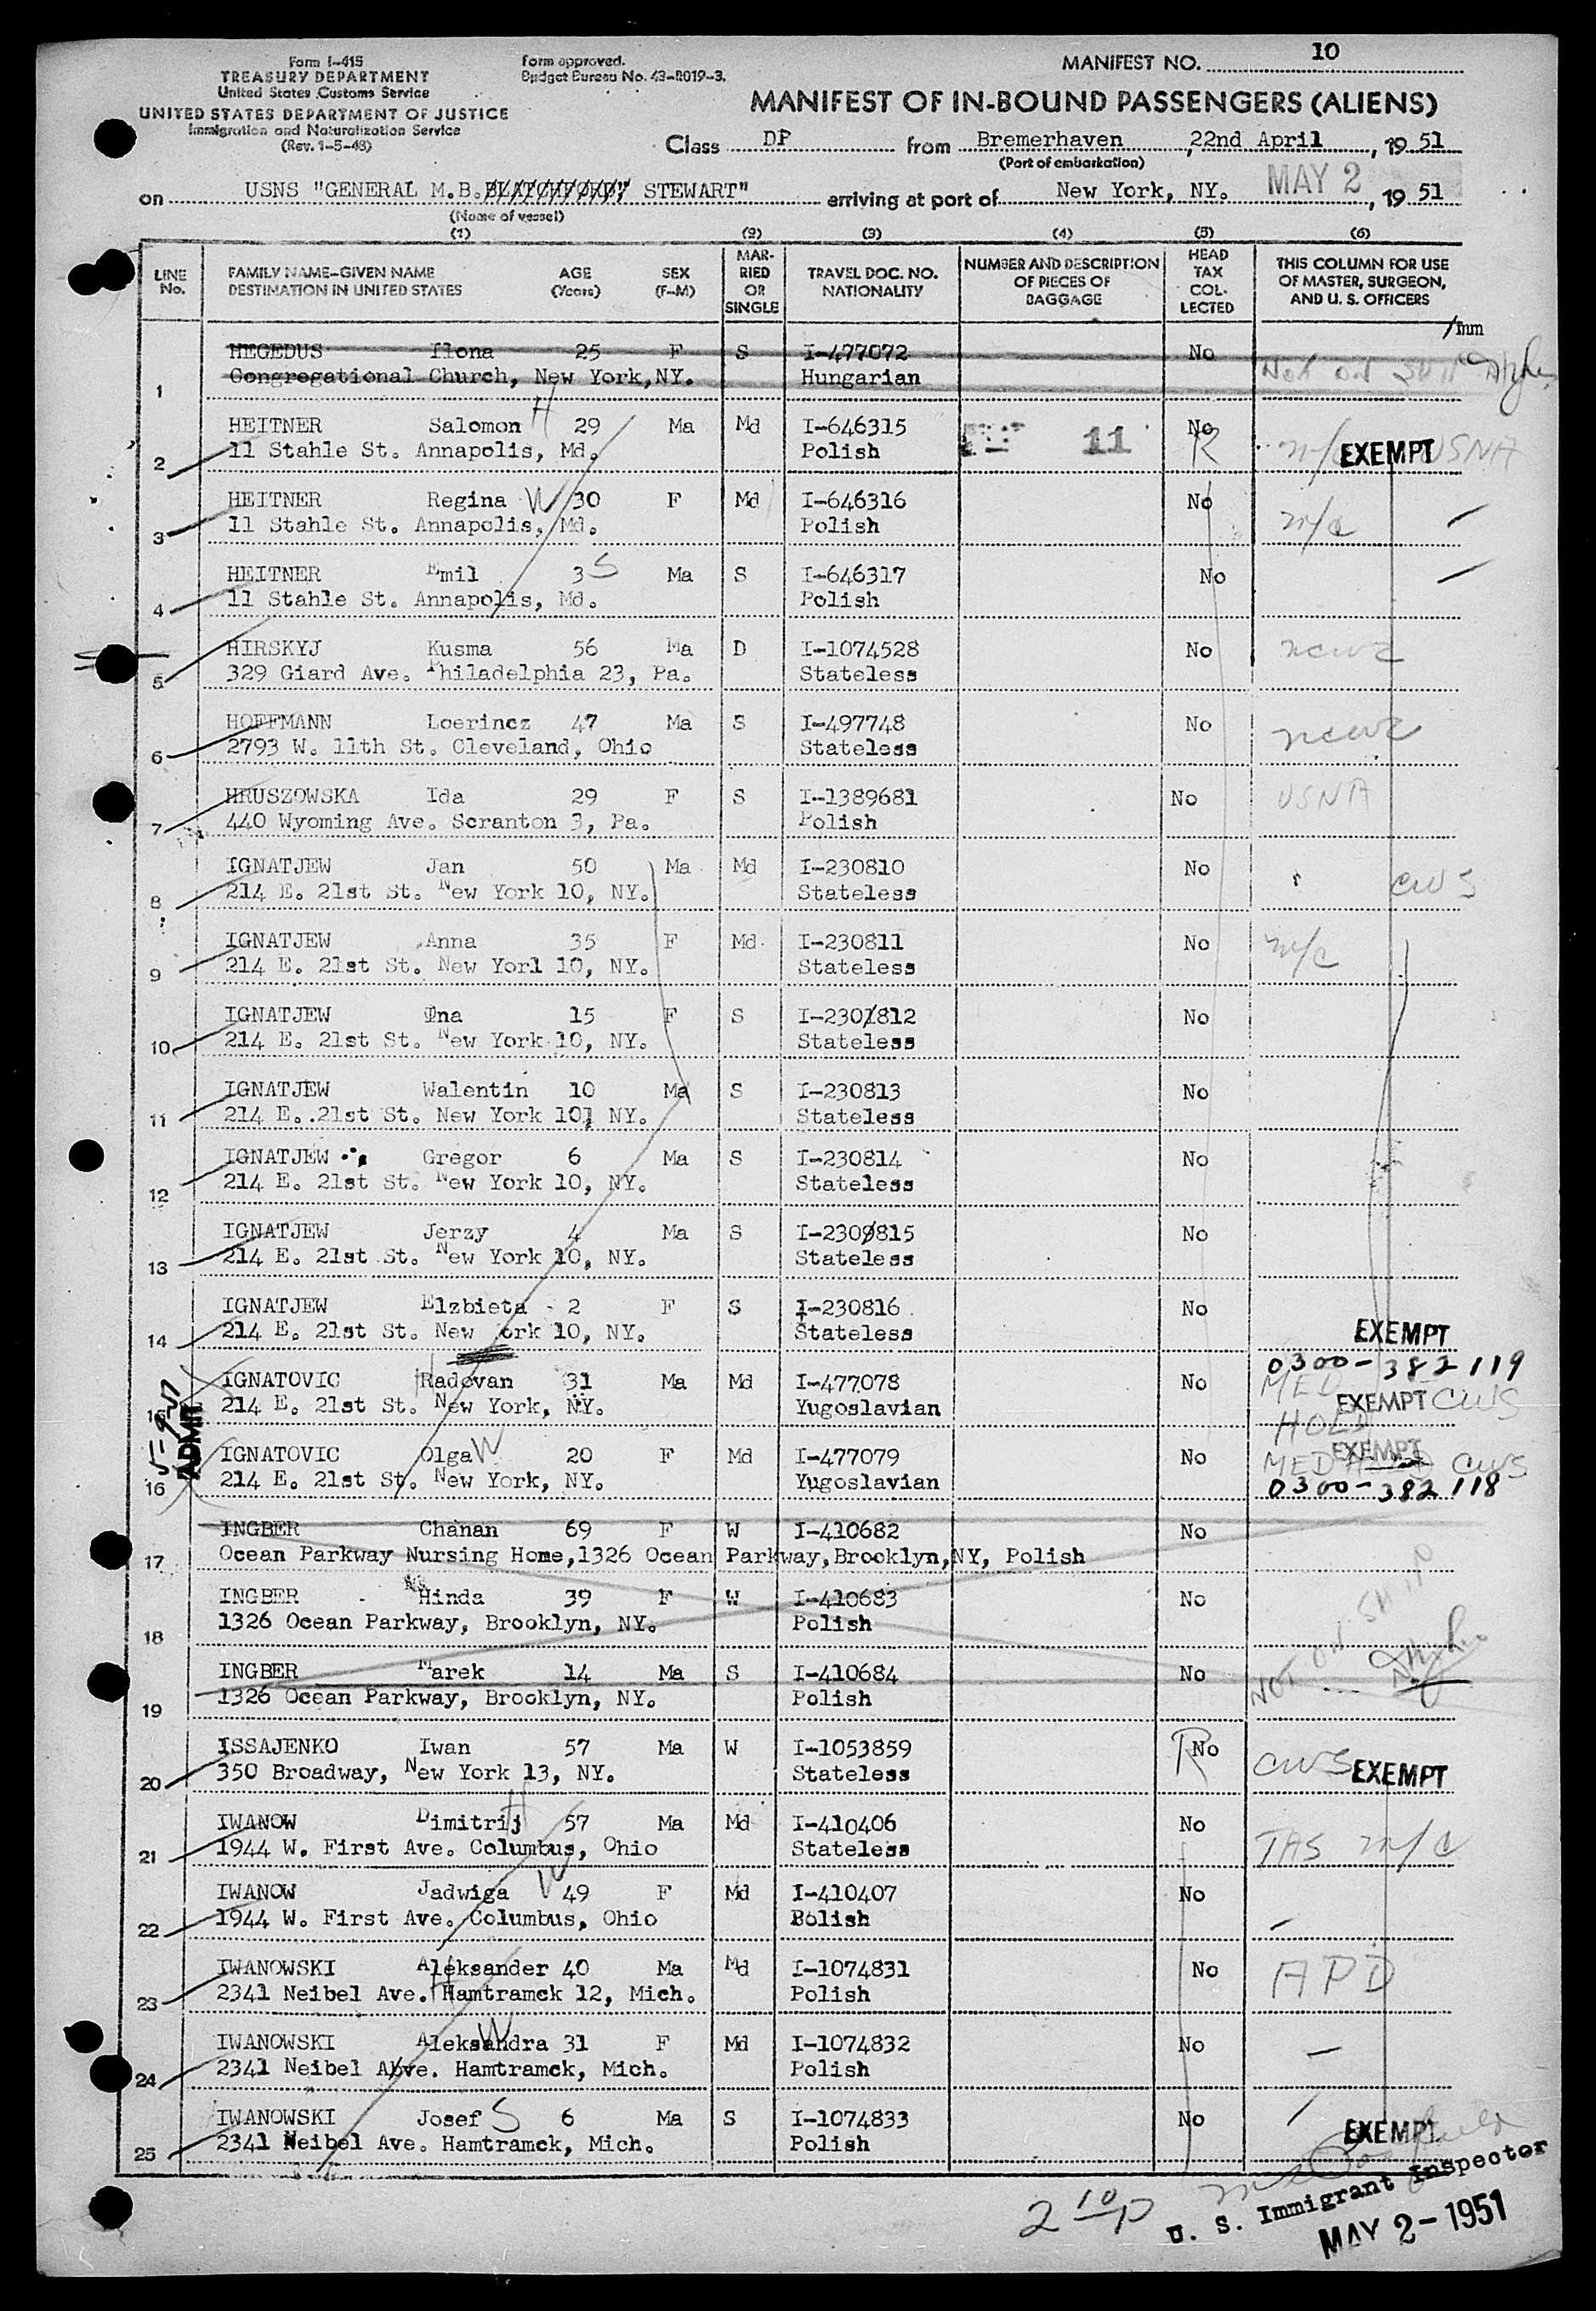 Form I-415
TREASURY DEPARTMENT
United States Customs Service
UNITED STATES DEPARTMENT OF JUSTICE
Immigration and Naturalization Service
(Rev. 1-5-48)
Form approved.
Budget Bureau No. 43-R019-3.
MANIFEST NO. 10
MANIFEST OF IN-BOUND PASSENGERS (ALIENS)
Class DP from Bremerhaven, 22nd April, 19 51
(Port of embarkation)
on USNS "GENERAL M.B. STEWART" arriving at port of New York, NY. MAY 2, 19 51
(Name of vessel)
(1) (2) (3) (4) (5) (6)
LINE No. FAMILY NAME-GIVEN NAME DESTINATION IN UNITED STATES AGE (Years) SEX (F-M) MARRIED OR SINGLE TRAVEL DOC. NO. NATIONALITY NUMBER AND DESCRIPTION OF PIECES OF BAGGAGE HEAD TAX COLLECTED THIS COLUMN FOR USE OF MASTER, SURGEON, AND U. S. OFFICERS
HEGEDUS Ilona 25 F S I-477072 No
1 Congregational Church, New York,NY. Hungarian Not on Ship
HEITNER Salomon H 29 Ma Md I-646315 11 No
2 11 Stahle St. Annapolis, Md. Polish R n/c EXEMPT USNA
HEITNER Regina W 30 F Md I-646316 No
3 11 Stahle St. Annapolis, Md. Polish n/c
HEITNER Emil 3 S Ma S I-646317 No
4 11 Stahle St. Annapolis, Md. Polish
HIRSKYJ Kusma 56 Ma D I-1074528 No ncwc
5 329 Giard Ave. Philadelphia 23, Pa. Stateless
HOFFMANN Loerincz 47 Ma S I-497748 No ncwc
6 2793 W. 11th St. Cleveland, Ohio Stateless
HRUSZOWSKA Ida 29 F S I-1389681 No USNA
7 440 Wyoming Ave. Scranton 3, Pa. Polish
IGNATJEW Jan 50 Ma Md I-230810 No CWS
8 214 E. 21st St. New York 10, NY. Stateless
IGNATJEW Anna 35 F Md I-230811 No n/c
9 214 E. 21st St. New Yorl 10, NY. Stateless
IGNATJEW Ina 15 F S I-230812 No
10 214 E. 21st St. New York 10, NY. Stateless
IGNATJEW Walentin 10 Ma S I-230813 No
11 214 E. 21st St. New York 10, NY. Stateless
IGNATJEW Gregor 6 Ma S I-230814 No
12 214 E. 21st St. New York 10, NY. Stateless
IGNATJEW Jerzy 4 Ma S I-230815 No
13 214 E. 21st St. New York 10, NY. Stateless
IGNATJEW Elzbieta 2 F S I-230816 No
14 214 E. 21st St. New ork 10, NY. Stateless EXEMPT
0300-382119
IGNATOVIC Radovan 31 Ma Md I-477078 No MED
15 214 E. 21st St. New York, NY. Yugoslavian EXEMPT CWS
HOLD
ADMIT
IGNATOVIC Olga W 20 F Md I-477079 No EXEMPT MED HOLD CWS
16 214 E. 21st St. New York, NY. Yugoslavian 0300-382118
INGBER Chanan 69 F W I-410682 No
17 Ocean Parkway Nursing Home,1326 Ocean Parkway,Brooklyn,NY, Polish
INGBER Hinda 39 F W I-410683 No
18 1326 Ocean Parkway, Brooklyn, NY. Polish
NOT ON SHIP
INGBER Marek 14 Ma S I-410684 No
19 1326 Ocean Parkway, Brooklyn, NY. Polish
ISSAJENKO Iwan 57 Ma W I-1053859 R No
20 350 Broadway, New York 13, NY. Stateless CWS EXEMPT
IWANOW Dimitrij H 57 Ma Md I-410406 No
21 1944 W. First Ave. Columbus, Ohio Stateless TAS n/c
IWANOW Jadwiga W 49 F Md I-410407 No
22 1944 W. First Ave. Columbus, Ohio Polish
IWANOWSKI Aleksander 40 Ma Md I-1074831 No APD
23 2341 Neibel Ave. Hamtramck 12, Mich. Polish
IWANOWSKI Aleksandra W 31 F Md I-1074832 No
24 2341 Neibel Ave. Hamtramck, Mich. Polish
IWANOWSKI Josef S 6 Ma S I-1074833 No
25 2341 Neibel Ave. Hamtramck, Mich. Polish EXEMPT
2 10 p
U. S. Immigrant Inspector
MAY 2-1951